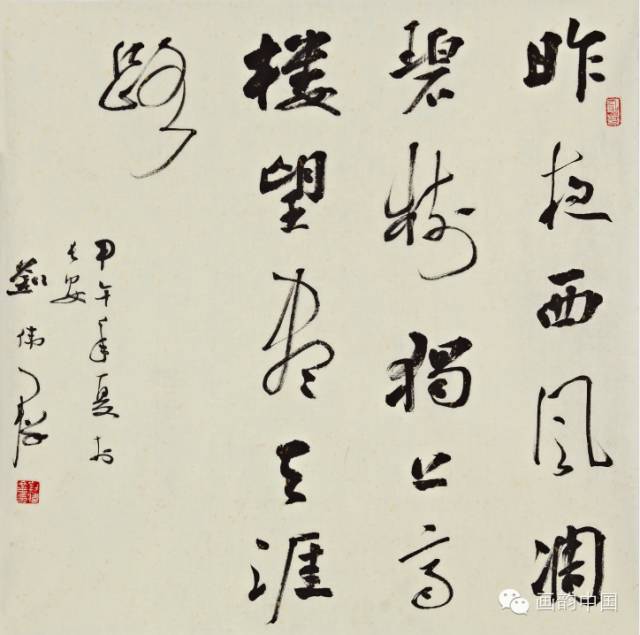 昨夜西风凋
碧树獨上高
楼望尽天涯
路
甲午年夏於
长安
劉偉
画韵中国